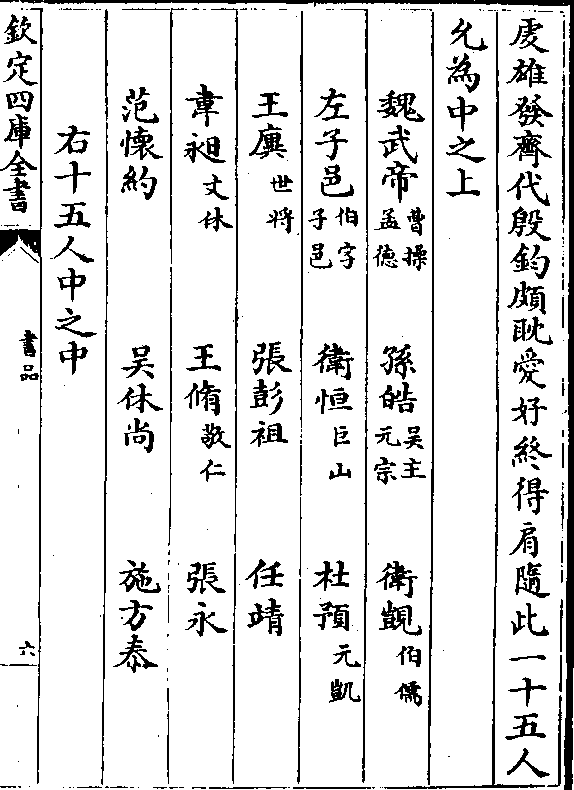 虔雄發齊代殷鈞頗耽愛好終得肩隨此一十五人
允為中之上
魏武帝曹操孟德 孫皓吳主元宗 衛覬伯儒
左子邑伯字子邑 衛恒巨山 杜預元凱
王廙世將 張彭祖 任靖
韋昶文休 王脩敬仁 張永
范懷約 吴休尚 施方泰
右十五人中之中
欽定四庫全書 書品 六